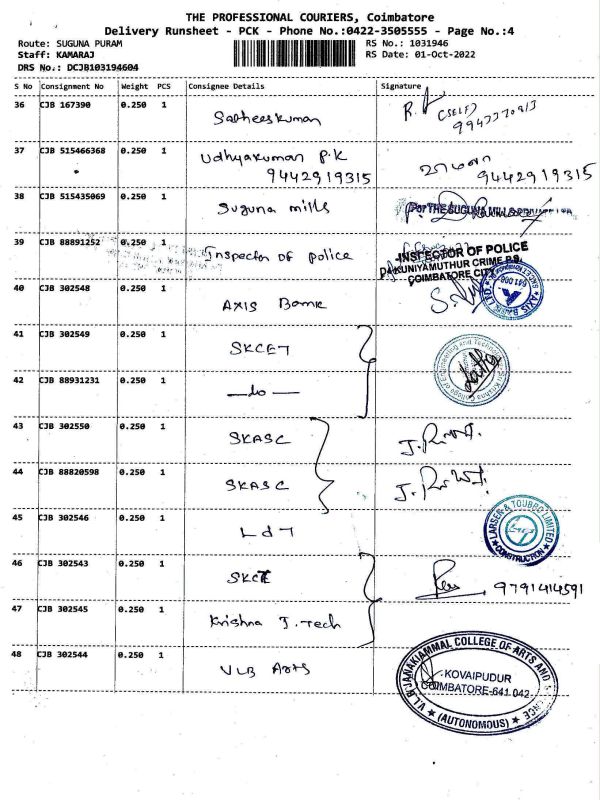 THE PROFESSIONAL COURIERS, Coimbatore
Delivery Runsheet - PCK - Phone No.:0422-3505555 - Page No.:4
Route: SUGUNA PURAM
RS No.: 1031946
Staff: KAMARAJ
RS Date: 01-Oct-2022
DRS No.: DCJB103194604
S No Consignment No Weight PCS Consignee Details Signature
36 CJB 167390 0.250 1 Satheeskumar (SELF)
37 CJB 515466368 0.250 1 Udhyakumar P.K
9442919315 9442919315
38 CJB 515435069 0.250 1 Suguna mills For THE SUGUNA MILLS
39 CJB 88891252 0.250 1 Inspector of police INSPECTOR OF POLICE
KUNIYAMUTHUR CRIME P.S.
COIMBATORE CITY
40 CJB 302548 0.250 1 Axis Bank AXIS BANK LTD
41 CJB 302549 0.250 1 SKCET
Sri Krishna College of Engineering and Technology
42 CJB 88931231 0.250 1 —do—
43 CJB 302550 0.250 1 SKASC
44 CJB 88820598 0.250 1 SKASC
45 CJB 302546 0.250 1 L d T LARSEN & TOUBRO LIMITED
CONSTRUCTION
46 CJB 302543 0.250 1 SKCT 9791414591
47 CJB 302545 0.250 1 Krishna I.Tech
48 CJB 302544 0.250 1 VLB Arts
V.L.B. JANAKIAMMAL COLLEGE OF ARTS AND SCIENCE
KOVAIPUDUR
COIMBATORE-641 042
(AUTONOMOUS)